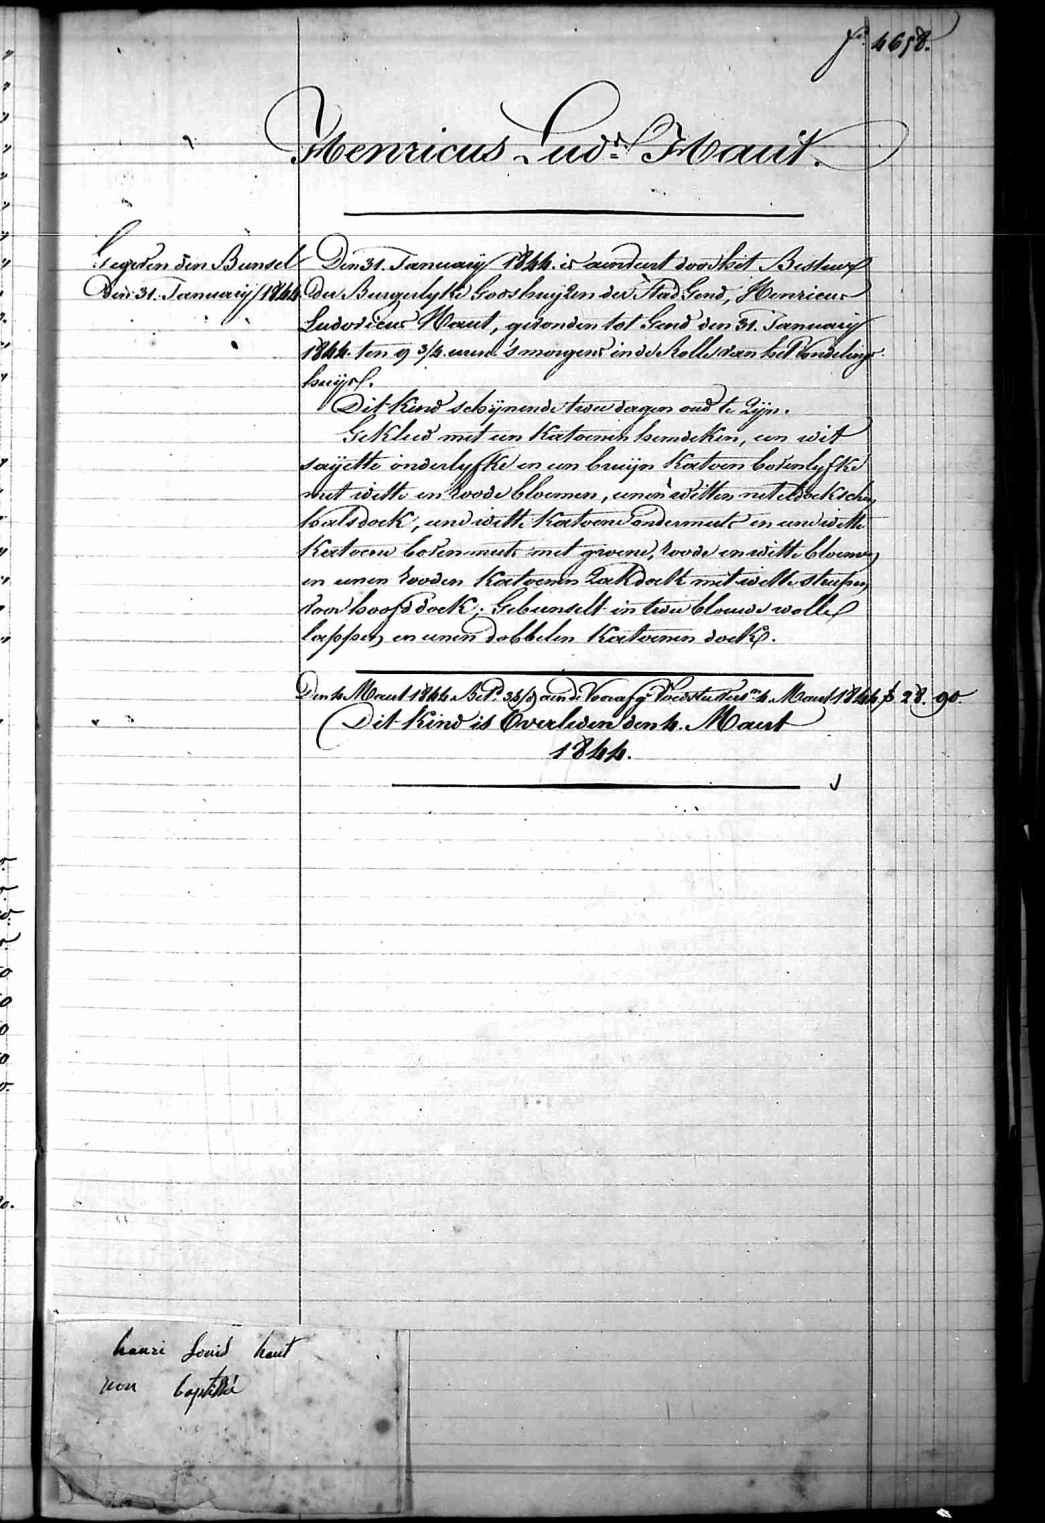 fo 4658.
Henricus Luds. Haut.
Gegeven den Bunsel
Den 31. January 1844
Den 31. January 1844. is aenveert door het Bestuer
der Burgerlyke Godshuyzen der Stad Gend, Henricus
Ludovicus Haut, gevonden tot Gend den 31. January
1844 ten 9 3/4 uren 's morgens in de Rolle van het Vondelings
huys.
Dit Kind schynende twee dagen oud te Zyn.
Gekleed met een Katoenen hemdeken, een wit
sayette onderlyfke en een bruyn Katoen bovenlyfke
met witte en roode bloemen, eenen witten neteldoekschen
halsdoek, eene witte Katoene ondermuts en eene witte
Katoene bovenmuts met groene, roode en witte bloemen
en eenen rooden Katoenen Zakdoek met witte streepen
voor hoofddoek; Gebunselt in twee blauwe wolle
lappen en eenen dobbelen Katoenen doek.
Den 4 Maert 1844 Betd. aen de Voorafg. Voedster 4. Maert 1844 28. 90.
Dit Kind is Overleden den 4. Maert
1844.
henri Louis haut
non baptisé